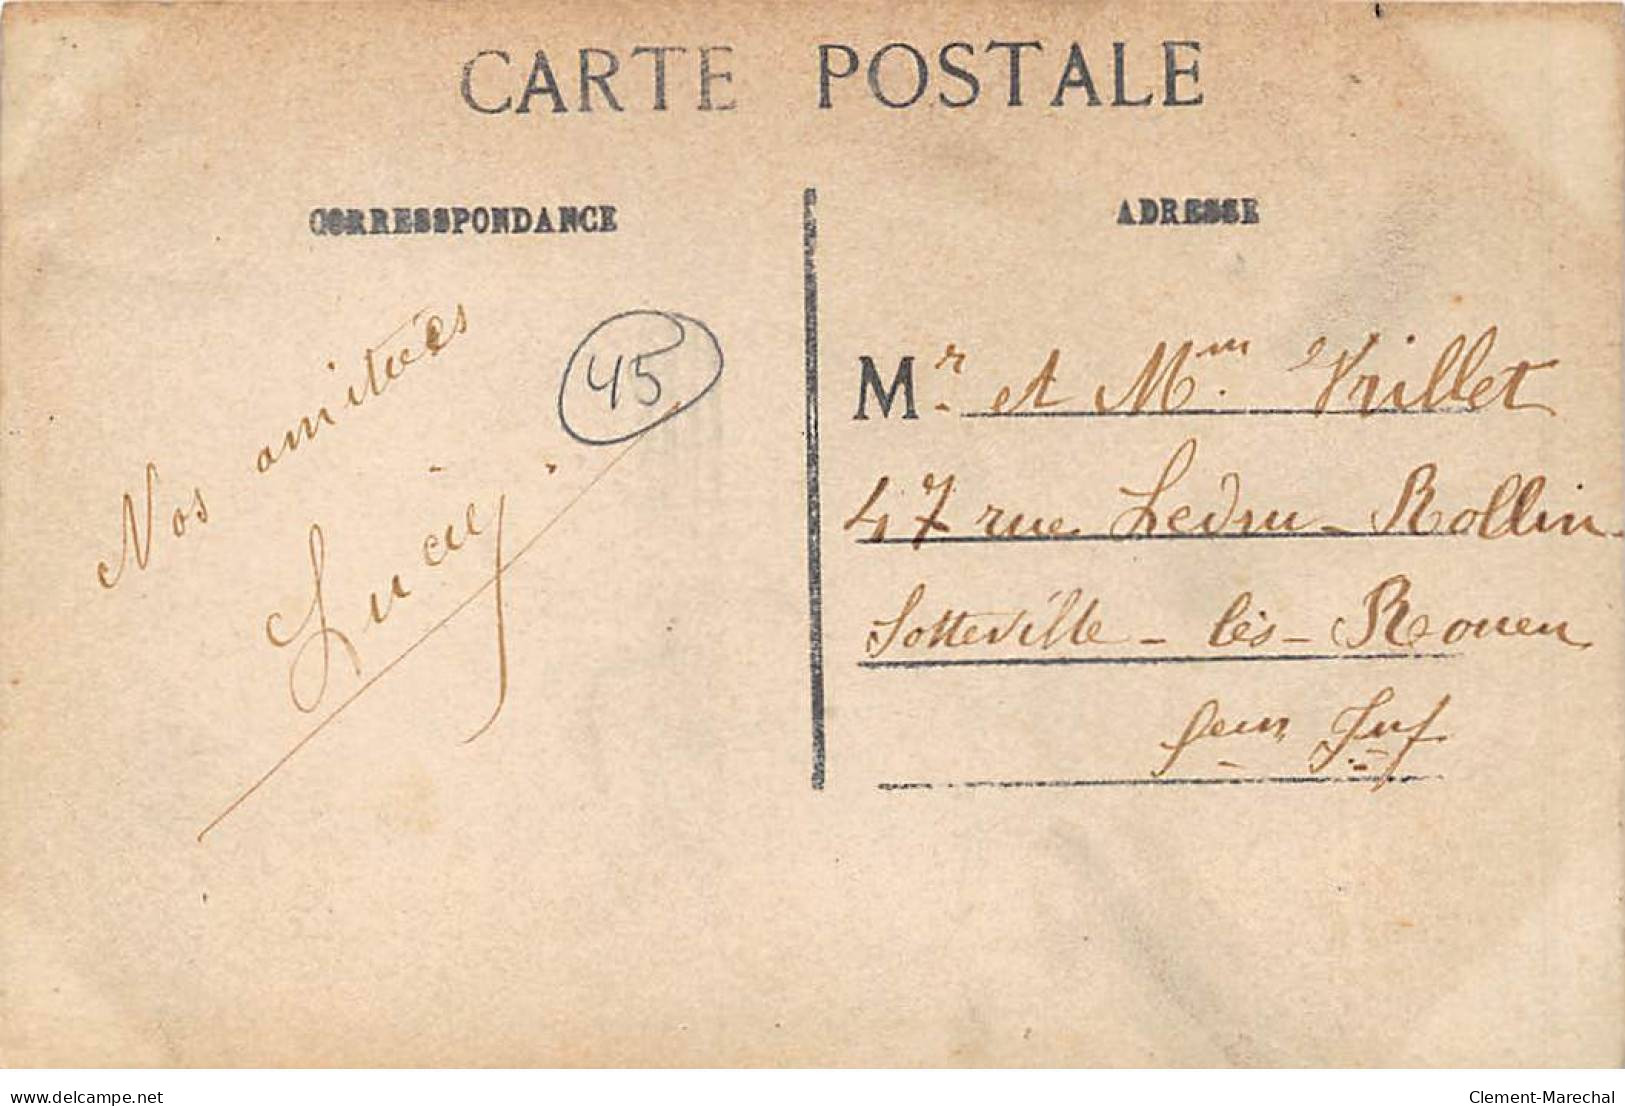 CARTE POSTALE
CORRESSPONDANCE
Nos amitiées
45
ADRESSE
Mr. et Mm. Vrillet
47 rue Ledru-Rollin
Sotteville-lès-Rouen
Seine Inf
delcampe.net
Clement-Marechal